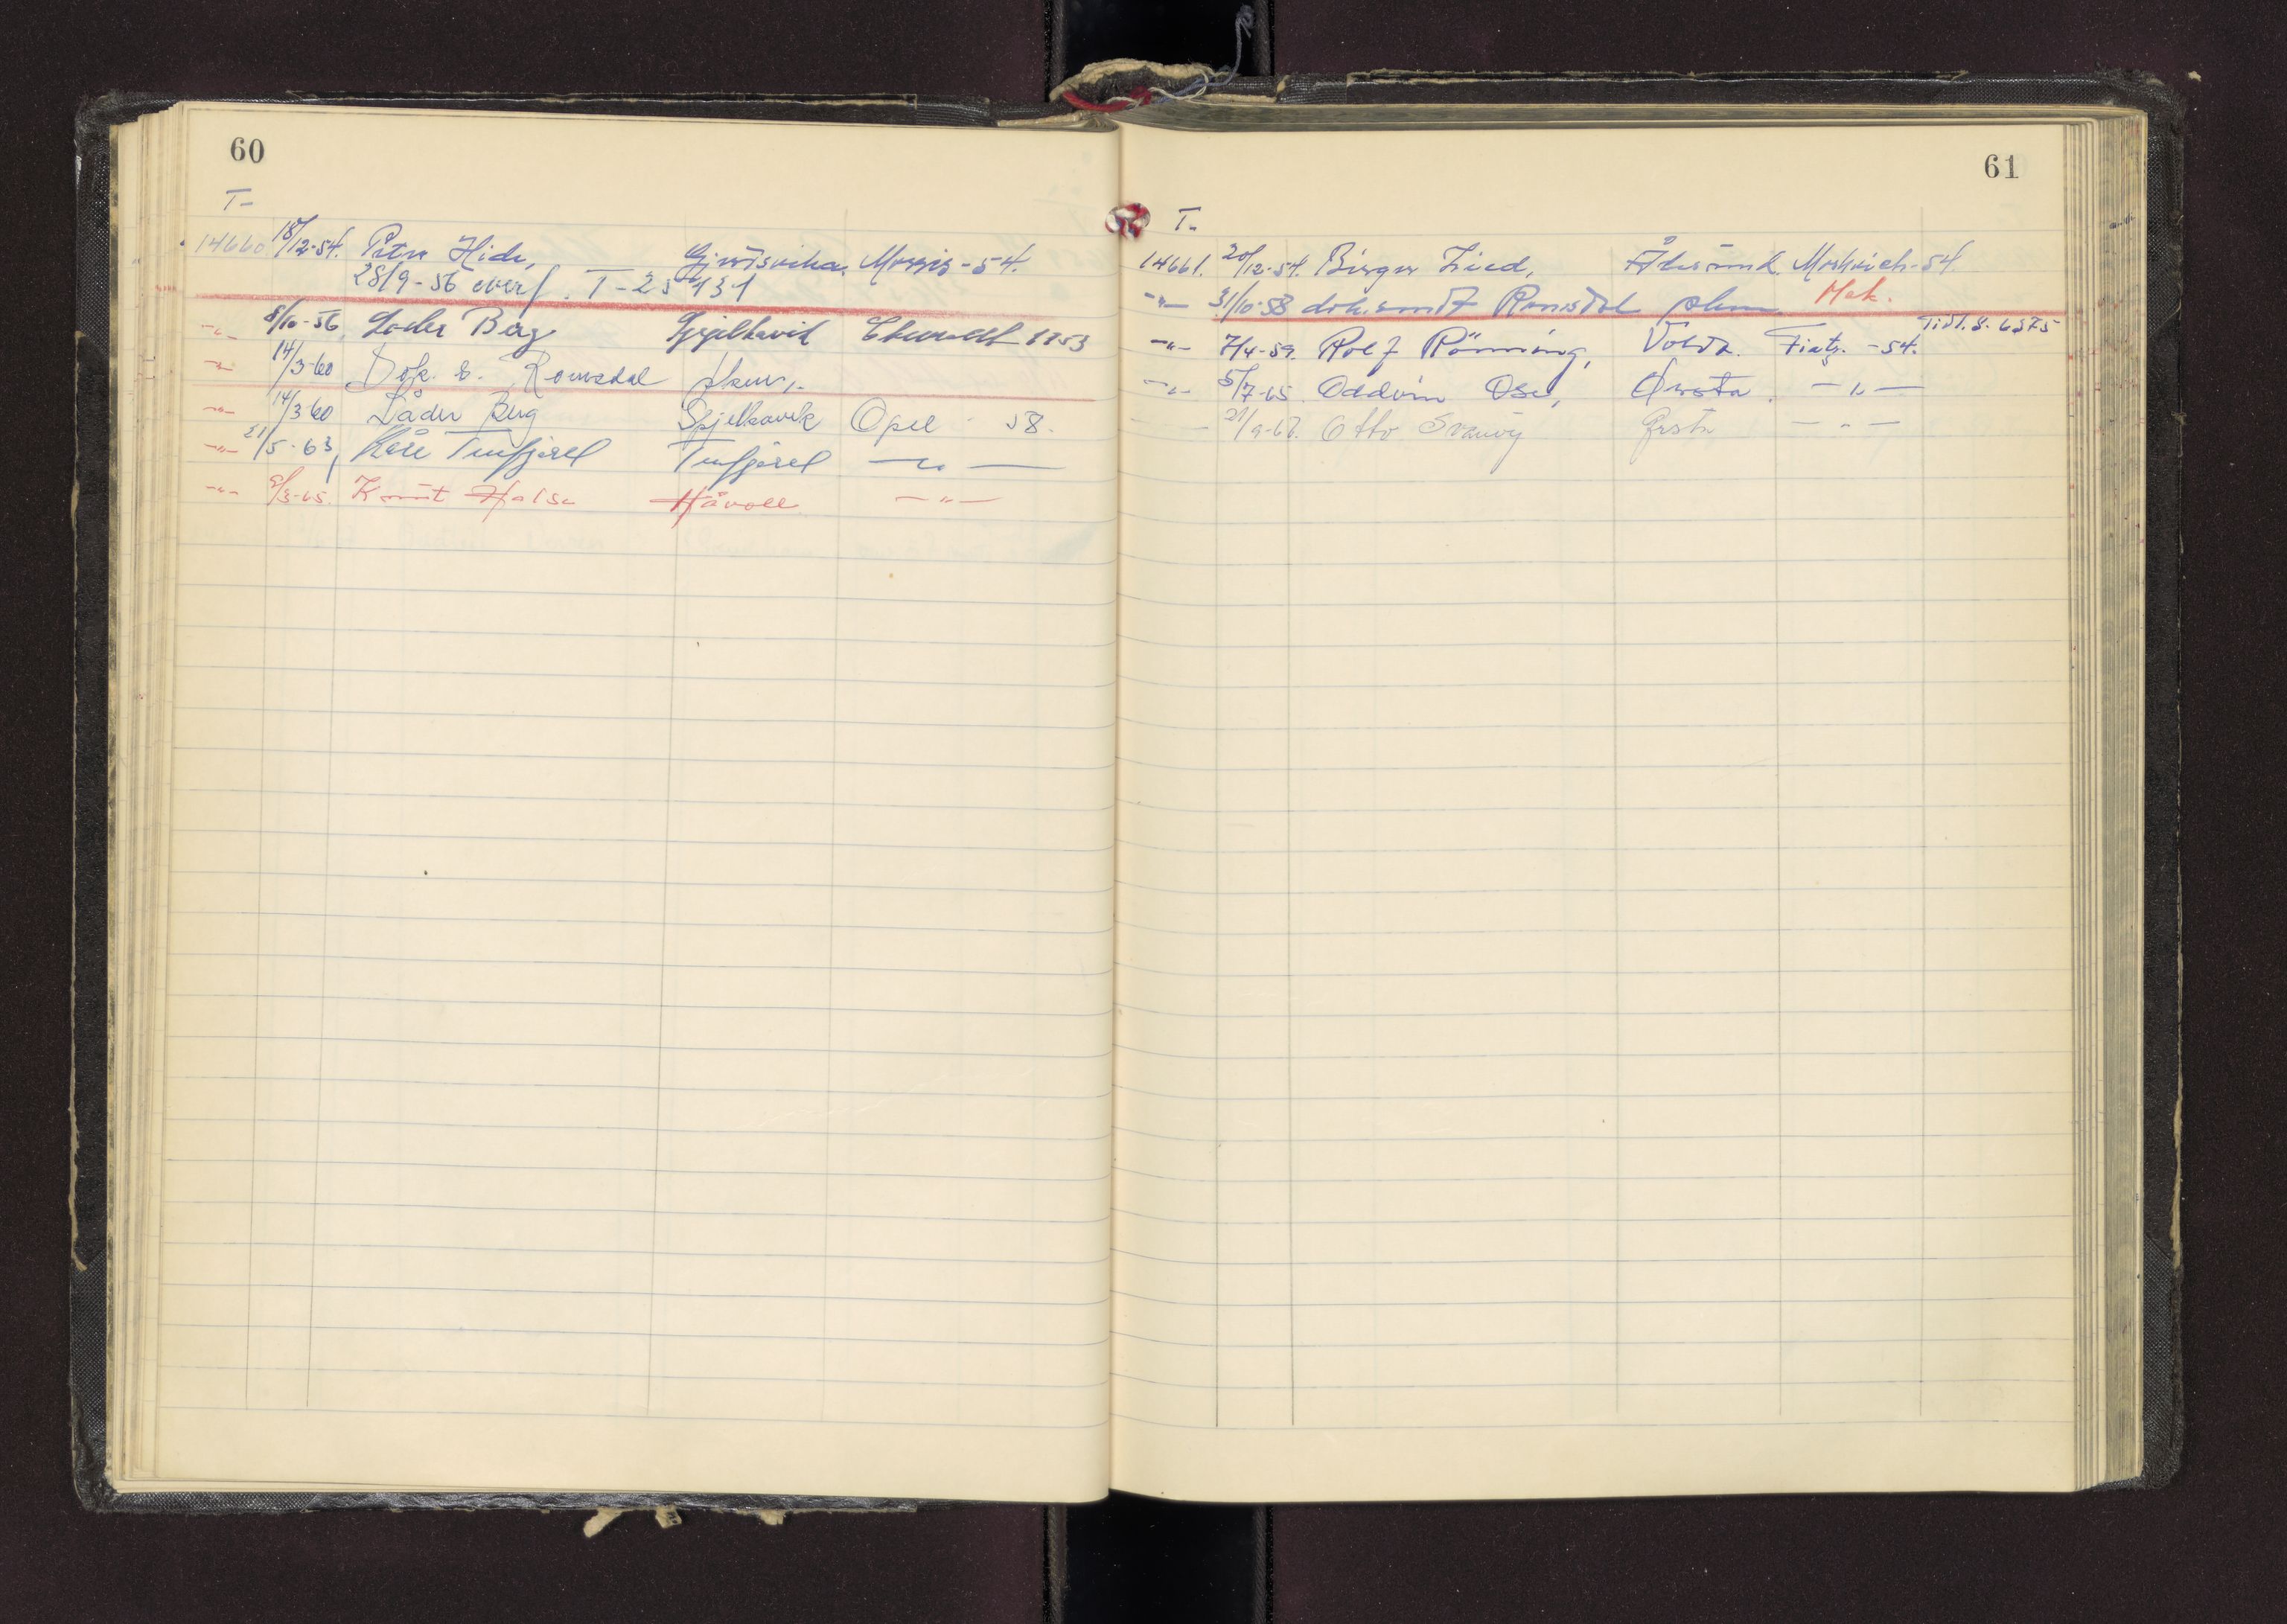 60
T-
14660 18/12-54. Peter Hide, Morris-54.
28/9-56 overf. T-25131
-"- 8/10-56. Lader Berg Spjelkavik Chevrolet 1953
-"- 14/3-60 Dok. s. Romsdal skm.
-"- 14/3-60 Låder Berg Spjelkavik Opel - 58.
-"- 21/5-63, Kåre Tusfjord —"—
-"- Knut Halse Håvoll —"—
61
T-
14661. 20/12-54. Birger Lied, Ålesund. Moskvich-54
-"- 31/10-58 dok. sendt Romsdal skm. Mek.
-"- 7/4-59. Rolf Rönning, Volda. Fiat -54. Tidl. S-6375
-"- 5/7-65. Oddvin Ose, Ørsta. —"—
21/9-67. Otto Ørsta —"—